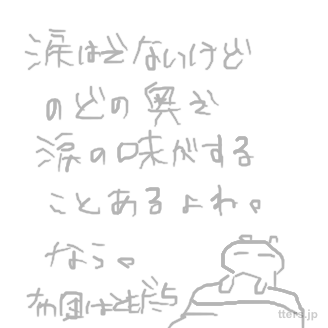 涙はでないけど
のどの奥で
涙の味がする
ことあるよね。
なう。
布団はともだち
tters.jp